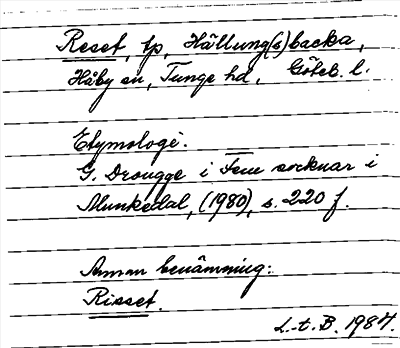 Reset, tp, Hällung(s)backa,
Håby sn, Tunge hd, Göteb. l.
Etymologi.
G. Drougge i Fem socknar i
Munkedal, (1980), s. 220 f.
Annan benämning:
Risset.
L-t. B. 1987.